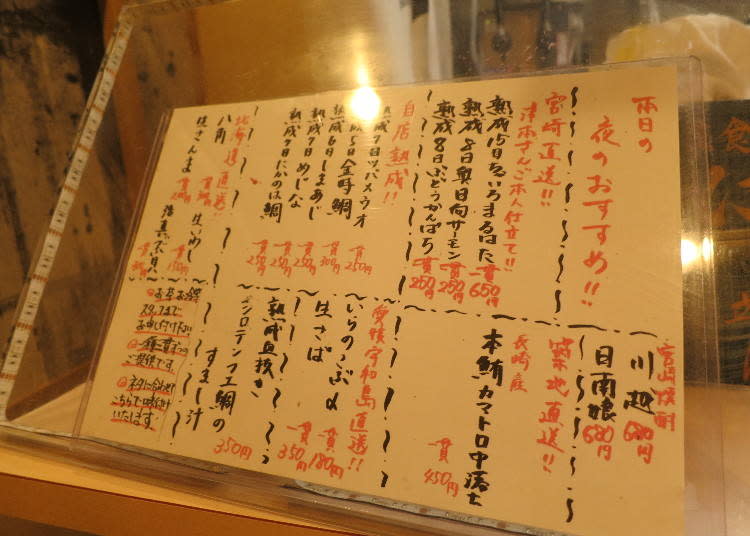 本日の
夜のおすすめ!!
宮崎直送!!
津本さんご本人仕立て!!
熟成15日
一貫650円
熟成8日奥日向サーモン
一貫250円
熟成8日ぶどうかんぱち
一貫250円
自店熟成!!
熟成7日ツバスウオ
一貫250円
熟成5日金時鯛
一貫300円
熟成6日しまあじ
一貫250円
熟成7日めじな
一貫250円
熟成7日たかのは鯛
一貫250円
北海道直送!!
八角
生いわし
一貫150円
生さんま
宮崎焼酎
川越 680円
日南娘 680円
築地直送!!
長崎産
本鮪カマトロ中落ち
一貫450円
愛媛宇和島直送!!
一貫180円
生さば
一貫350円
熟成
鯛の
すまし汁
350円
お会計は
スタッフまで
お申し付け下さい
一種一貫ずつの
ご提供です。
ネタに合わせて
こちらで味付け
いたします。